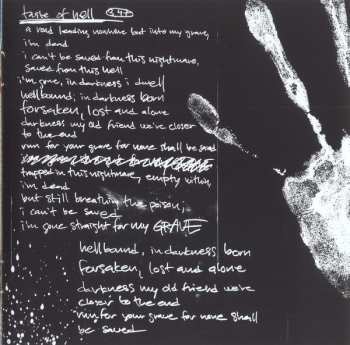 taste of hell 3.47
a road leading nowhere but into my grave,
i'm dead
i can't be saved from this nightmare,
saved from this hell
i'm gone, in darkness i dwell
hellbound, in darkness born
forsaken, lost and alone
darkness my old friend we've closer
to the end
run for your grave for none shall be saved
trapped in this nightmare, empty within,
i'm dead
but still breathin the poison,
i can't be saved
i'm gone straight for my GRAVE
hellbound, in darkness born
forsaken, lost and alone
darkness my old friend we've
closer to the end
run for your grave for none shall
be saved